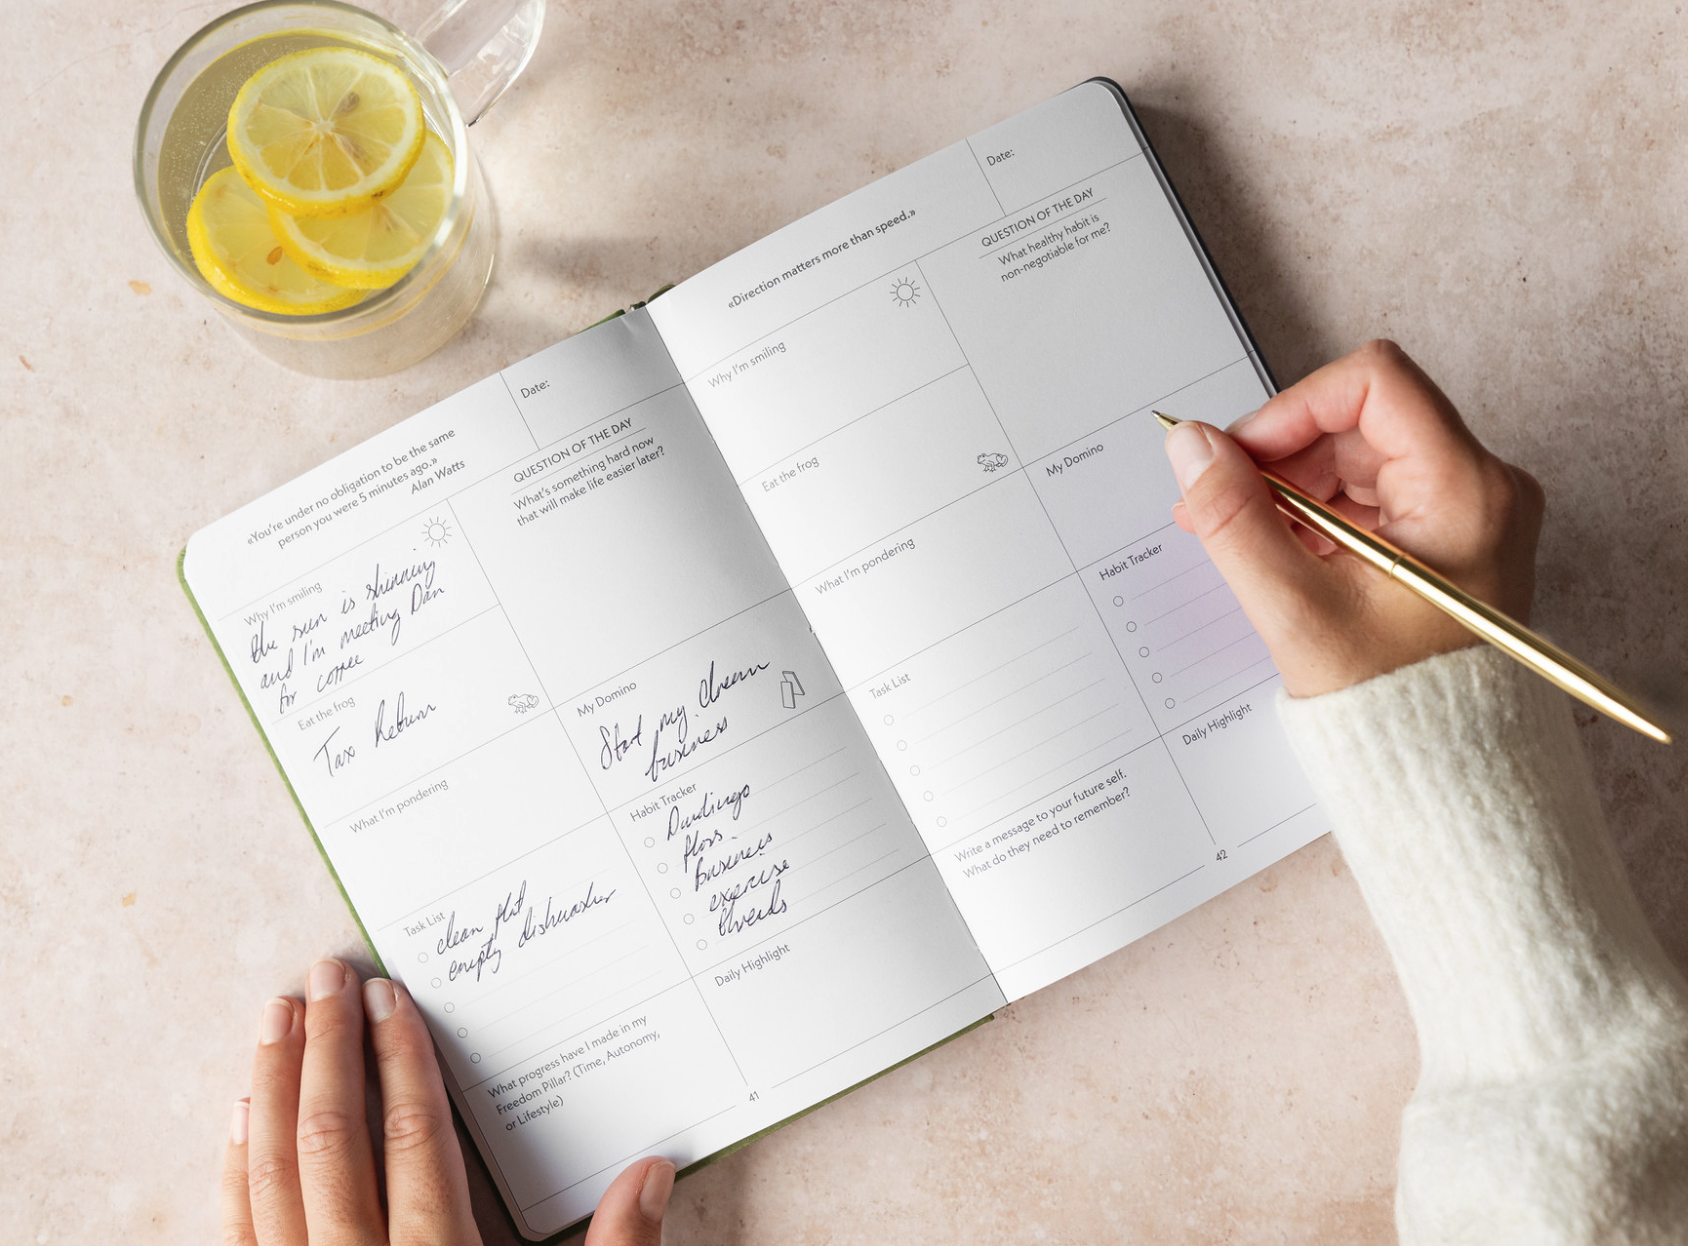 «You're under no obligation to be the same
person you were 5 minutes ago.»
Alan Watts
Date:
Why I'm smiling
the sun is shinning
and I'm meeting Dan
for coffee
QUESTION OF THE DAY
What's something hard now
that will make life easier later?
Eat the frog
Tax Return
What I'm pondering
My Domino
Start my dream
business
Task List
clean flat
empty dishwasher
Habit Tracker
Duolingo
floss
business
exercise
threads
What progress have I made in my
Freedom Pillar? (Time, Autonomy,
or Lifestyle)
Daily Highlight
41
«Direction matters more than speed.»
Date:
Why I'm smiling
QUESTION OF THE DAY
What healthy habit is
non-negotiable for me?
Eat the frog
What I'm pondering
My Domino
Task List
Habit Tracker
Write a message to your future self.
What do they need to remember?
Daily Highlight
42